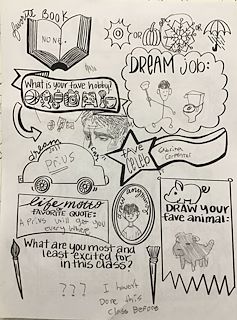 favorite BOOK
NONE.
OR
DREAM JOB:
What is your fave hobby?
dream car
Prius
FAVE CELEB
Sabrina
Carpenter
life motto
FAVORITE QUOTE:
A Prius will get you
every where
draw anything
DRAW YOUR
fave animal:
What are you most and
least excited for
in this class?
? ? ? I haven't
Done this
class Before